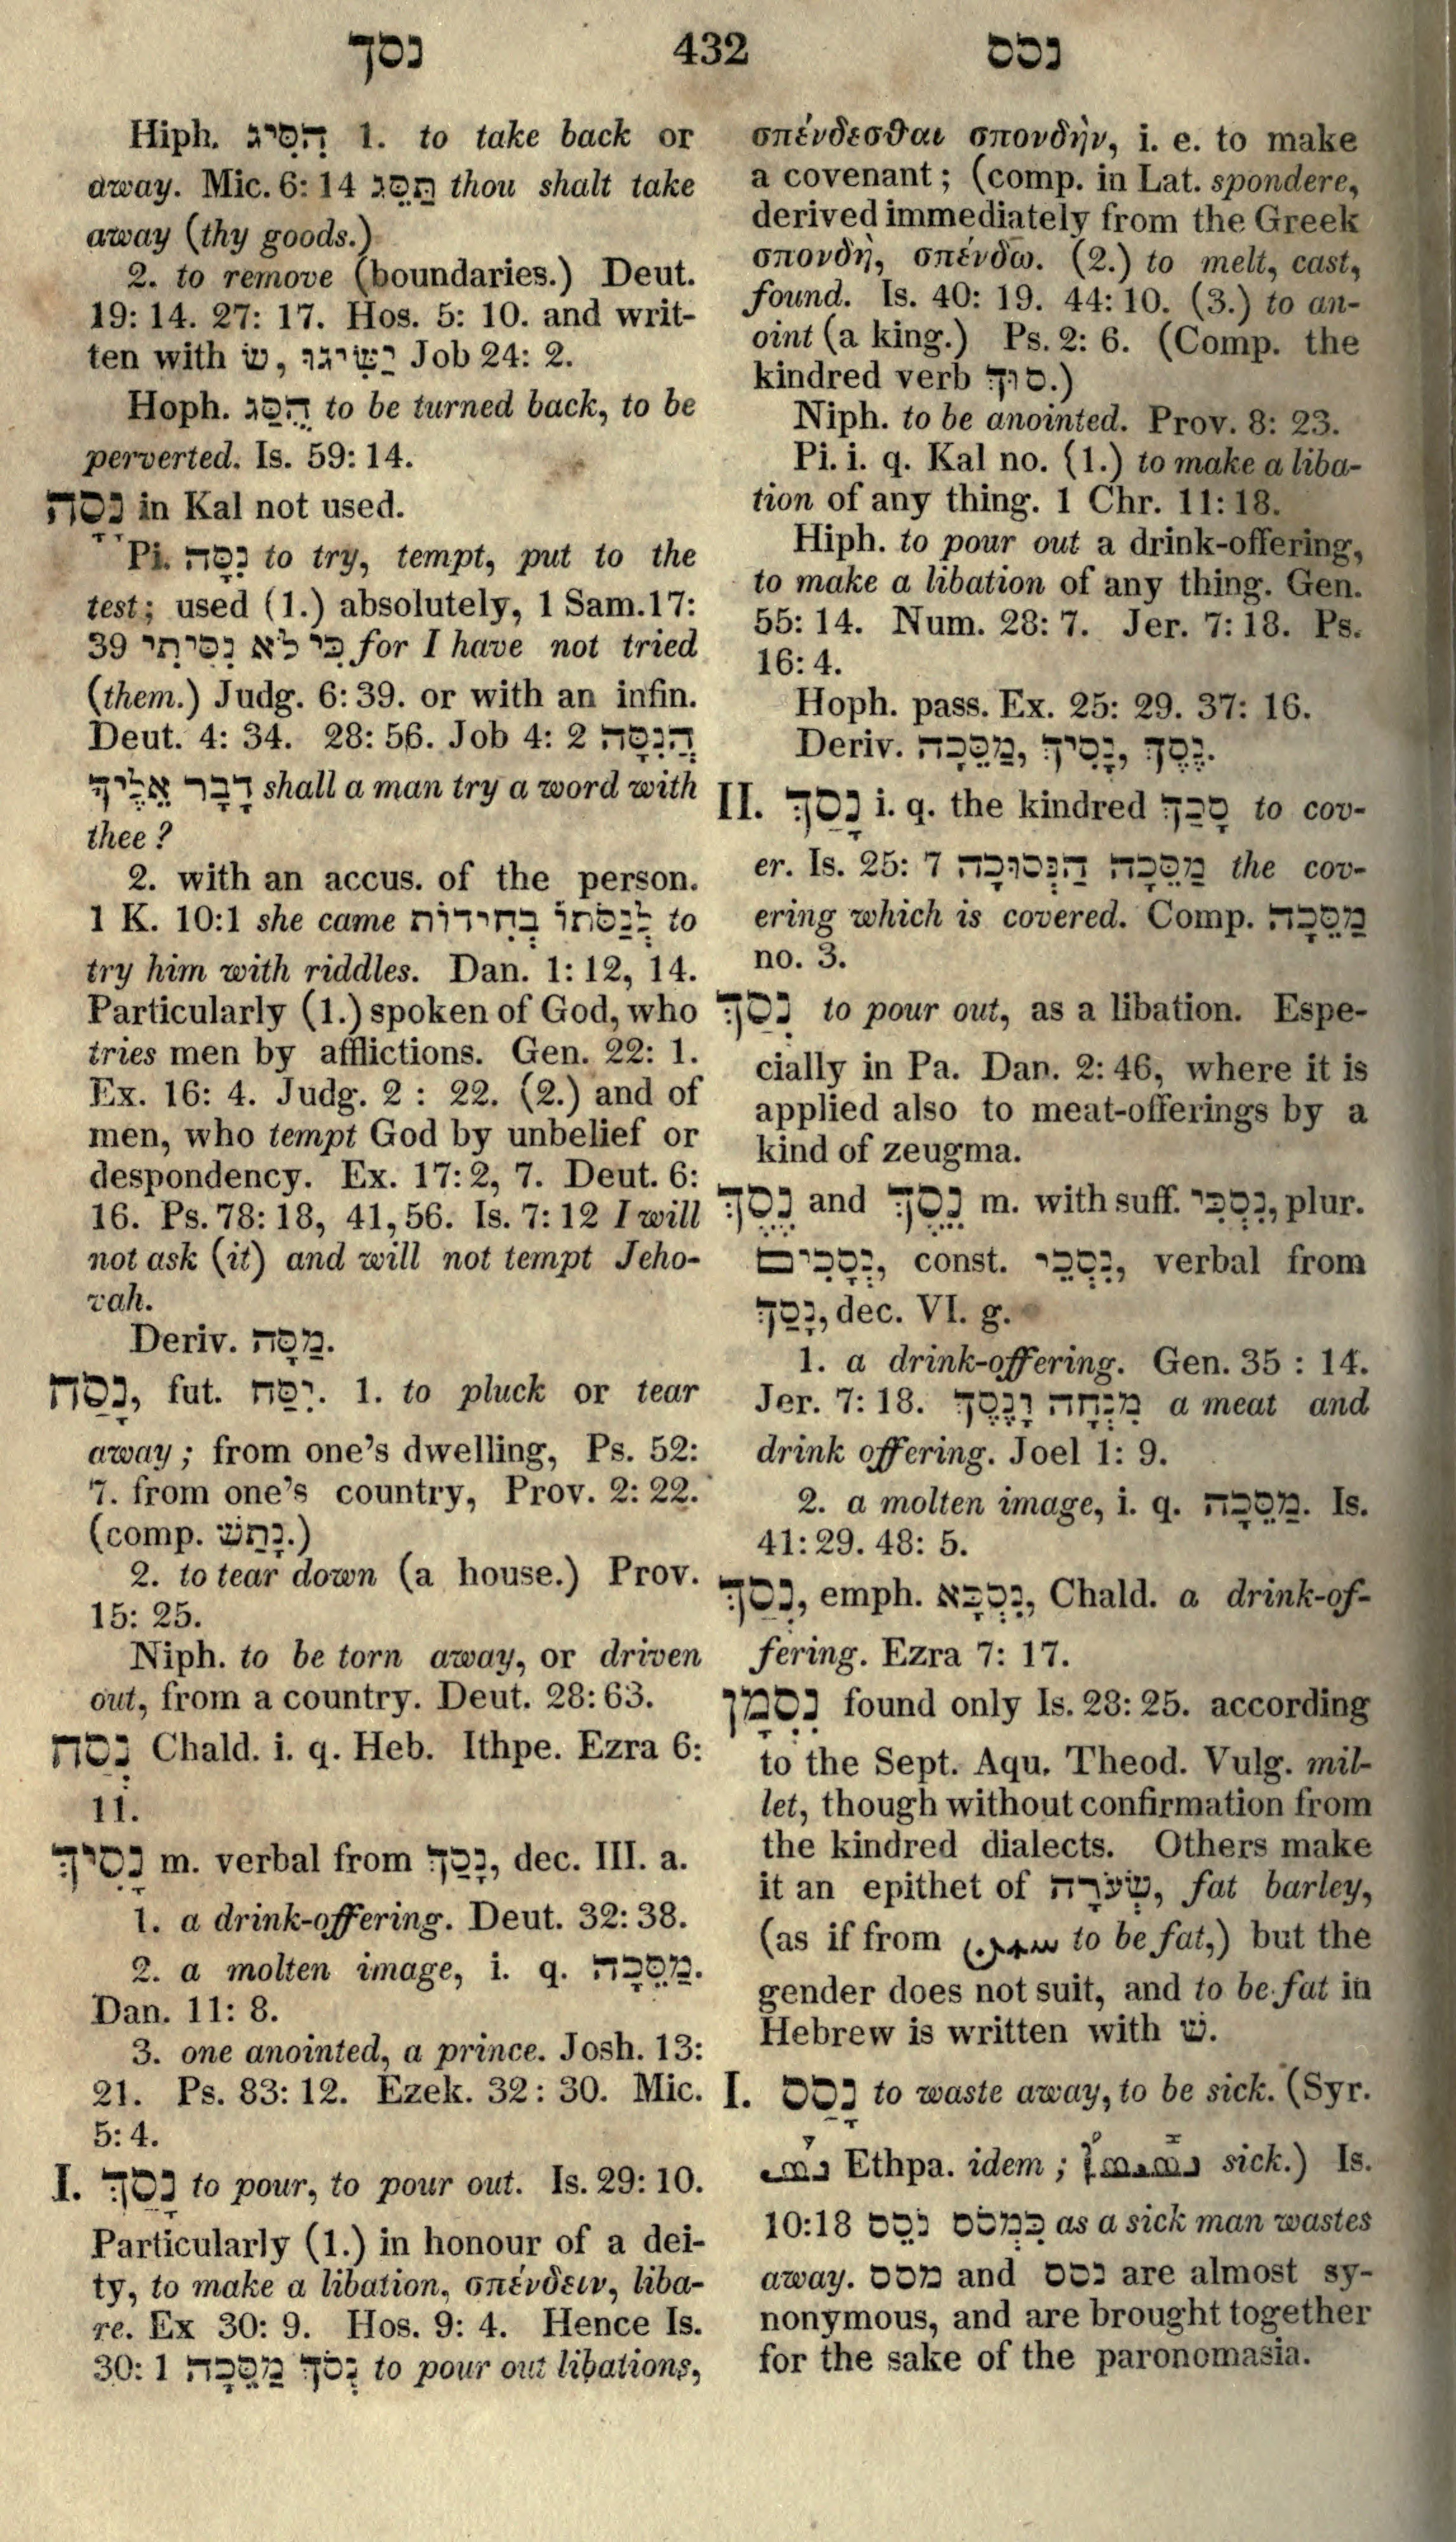 נסך 432 נסס
Hiph. הִסִּיג 1. to take back or
away. Mic. 6: 14 תַּסֵּג thou shalt take
away (thy goods.)
2. to remove (boundaries.) Deut.
19: 14. 27: 17. Hos. 5: 10. and writ-
ten with שׂ, יַשִּׂיגוּ Job 24: 2.
Hoph. הֻסַּג to be turned back, to be
perverted. Is. 59: 14.
נָסָה in Kal not used.
Pi. נִסָּה to try, tempt, put to the
test; used (1.) absolutely, 1 Sam. 17:
39 כִּי לֹא נִסִּיתִי for I have not tried
(them.) Judg. 6: 39. or with an infin.
Deut. 4: 34. 28: 56. Job 4: 2 הֲנִסָּה
דָבָר אֵלֶיךָ shall a man try a word with
thee?
2. with an accus. of the person.
1 K. 10:1 she came לְנַסֹּתוֹ בְּחִידוֹת to
try him with riddles. Dan. 1: 12, 14.
Particularly (1.) spoken of God, who
tries men by afflictions. Gen. 22: 1.
Ex. 16: 4. Judg. 2 : 22. (2.) and of
men, who tempt God by unbelief or
despondency. Ex. 17: 2, 7. Deut. 6:
16. Ps. 78: 18, 41, 56. Is. 7: 12 I will
not ask (it) and will not tempt Jeho-
vah.
Deriv. מַסָּה.
נָסַח, fut. יִסַּח. 1. to pluck or tear
away; from one's dwelling, Ps. 52:
7. from one's country, Prov. 2: 22.
(comp. נָתַשׁ.)
2. to tear down (a house.) Prov.
15: 25.
Niph. to be torn away, or driven
out, from a country. Deut. 28: 63.
נְסַח Chald. i. q. Heb. Ithpe. Ezra 6:
11.
נָסִיךְ m. verbal from נָסַךְ, dec. III. a.
1. a drink-offering. Deut. 32: 38.
2. a molten image, i. q. מַסֵּכָה.
Dan. 11: 8.
3. one anointed, a prince. Josh. 13:
21. Ps. 83: 12. Ezek. 32: 30. Mic.
5: 4.
I. נָסַךְ to pour, to pour out. Is. 29: 10.
Particularly (1.) in honour of a dei-
ty, to make a libation, σπένδειν, liba-
re. Ex 30: 9. Hos. 9: 4. Hence Is.
30: 1 נְסֹךְ מַסֵּכָה to pour out libations,
σπένδεσθαι σπονδὴν, i. e. to make
a covenant; (comp. in Lat. spondere,
derived immediately from the Greek
σπονδὴ, σπένδω. (2.) to melt, cast,
found. Is. 40: 19. 44: 10. (3.) to an-
oint (a king.) Ps. 2: 6. (Comp. the
kindred verb סוּךְ.)
Niph. to be anointed. Prov. 8: 23.
Pi. i. q. Kal no. (1.) to make a liba-
tion of any thing. 1 Chr. 11: 18.
Hiph. to pour out a drink-offering,
to make a libation of any thing. Gen.
55: 14. Num. 28: 7. Jer. 7: 18. Ps.
16: 4.
Hoph. pass. Ex. 25: 29. 37: 16.
Deriv. נֶסֶךְ, נָסִיךְ, מַסֵּכָה.
II. נָסַךְ i. q. the kindred סָכַךְ to cov-
er. Is. 25: 7 מַסֵּכָה הַנְּסוּכָה the cov-
ering which is covered. Comp. מַסֵּכָה
no. 3.
נְסַךְ to pour out, as a libation. Espe-
cially in Pa. Dan. 2: 46, where it is
applied also to meat-offerings by a
kind of zeugma.
נֶסֶךְ and נֵסֶךְ m. with suff. נִסְכִּי, plur.
נְסָכִים, const. נִסְכֵּי, verbal from
נָסַךְ, dec. VI. g.
1. a drink-offering. Gen. 35 : 14.
Jer. 7: 18. מִנְחָה וָנֶסֶךְ a meat and
drink offering. Joel 1: 9.
2. a molten image, i. q. מַסֵּכָה. Is.
41: 29. 48: 5.
נְסַךְ, emph. נִסְכָּא, Chald. a drink-of-
fering. Ezra 7: 17.
נִסְמָן found only Is. 28: 25. according
to the Sept. Aqu. Theod. Vulg. mil-
let, though without confirmation from
the kindred dialects. Others make
it an epithet of שְׂעֹרָה, fat barley,
(as if from سمن to be fat,) but the
gender does not suit, and to be fat in
Hebrew is written with שׁ.
I. נָסַס to waste away, to be sick. (Syr.
Ethpa. idem; sick.) Is.
10:18 כִּמְסֹס נֹסֵס as a sick man wastes
away. מסס and נסס are almost sy-
nonymous, and are brought together
for the sake of the paronomasia.